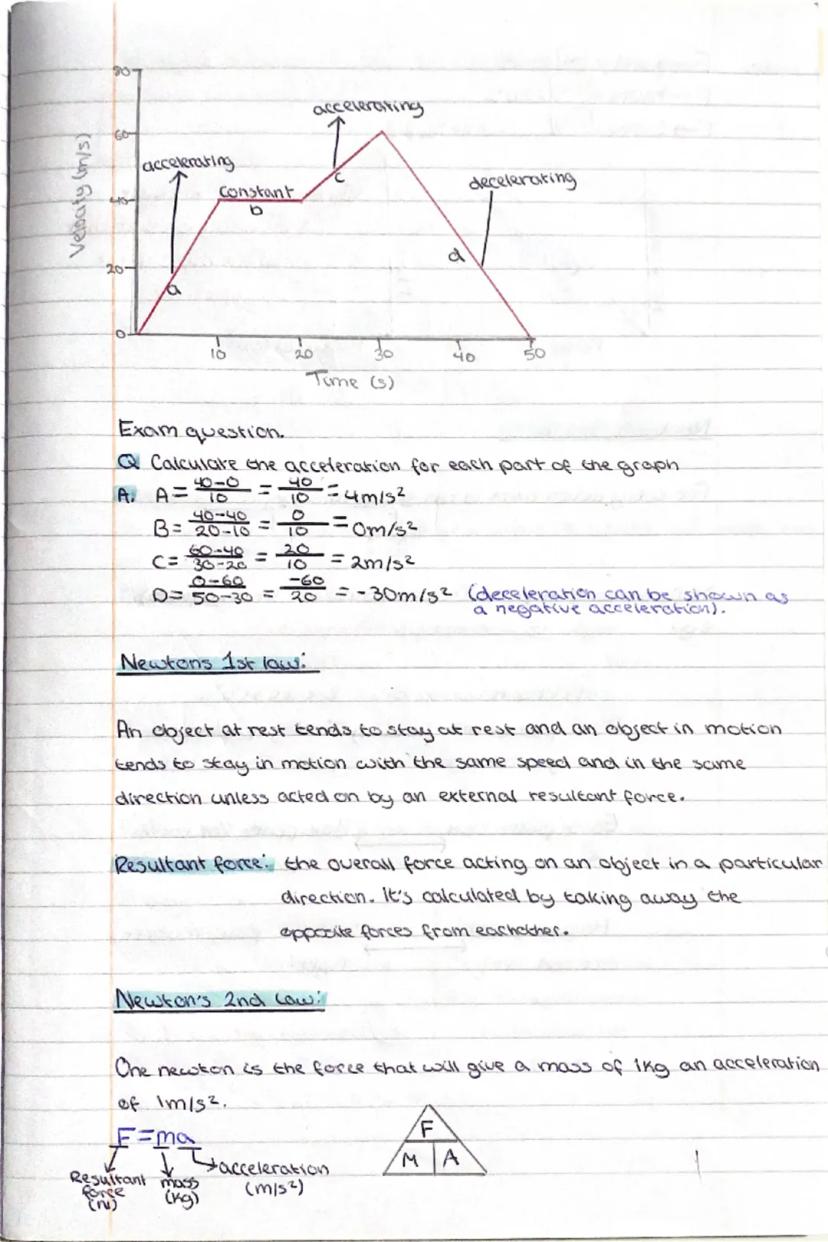 80
accelerating
60
Velocity (m/s)
accelerating
c
Constant
decelerating
40
b
d
20
a
0
10 20 30 40 50
Time (s)
Exam question.
Q Calculate the acceleration for each part of the graph
A. A = 40-0/10 = 40/10 = 4m/s²
B = 40-40/20-10 = 0/10 = 0m/s²
C = 60-40/30-20 = 20/10 = 2m/s²
D = 0-60/50-30 = -60/20 = -30m/s² (deceleration can be shown as
a negative acceleration).
Newtons 1st law:
An object at rest tends to stay at rest and an object in motion
tends to stay in motion with the same speed and in the same
direction unless acted on by an external resultant force.
Resultant force: the overall force acting on an object in a particular
direction. It's calculated by taking away the
opposite forces from eachother.
Newton's 2nd Law:
One newton is the force that will give a mass of 1kg an acceleration
of 1m/s².
F = ma
F
M A
Resultant force (N)
mass (kg)
acceleration (m/s²)